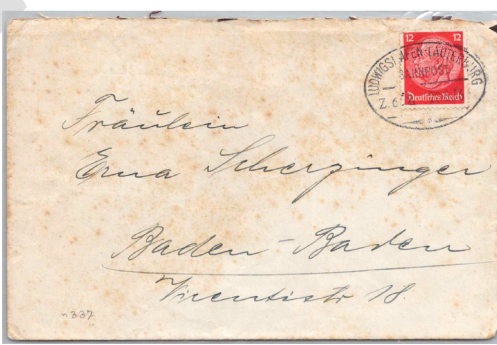 12 12
LUDWIGSHAFEN-LAUTERBURG
BAHNPOST
Z. 6
Deutsches Reich
Fräulein
Erna Scherzinger
Baden-Baden
Vincentistr 18.
337